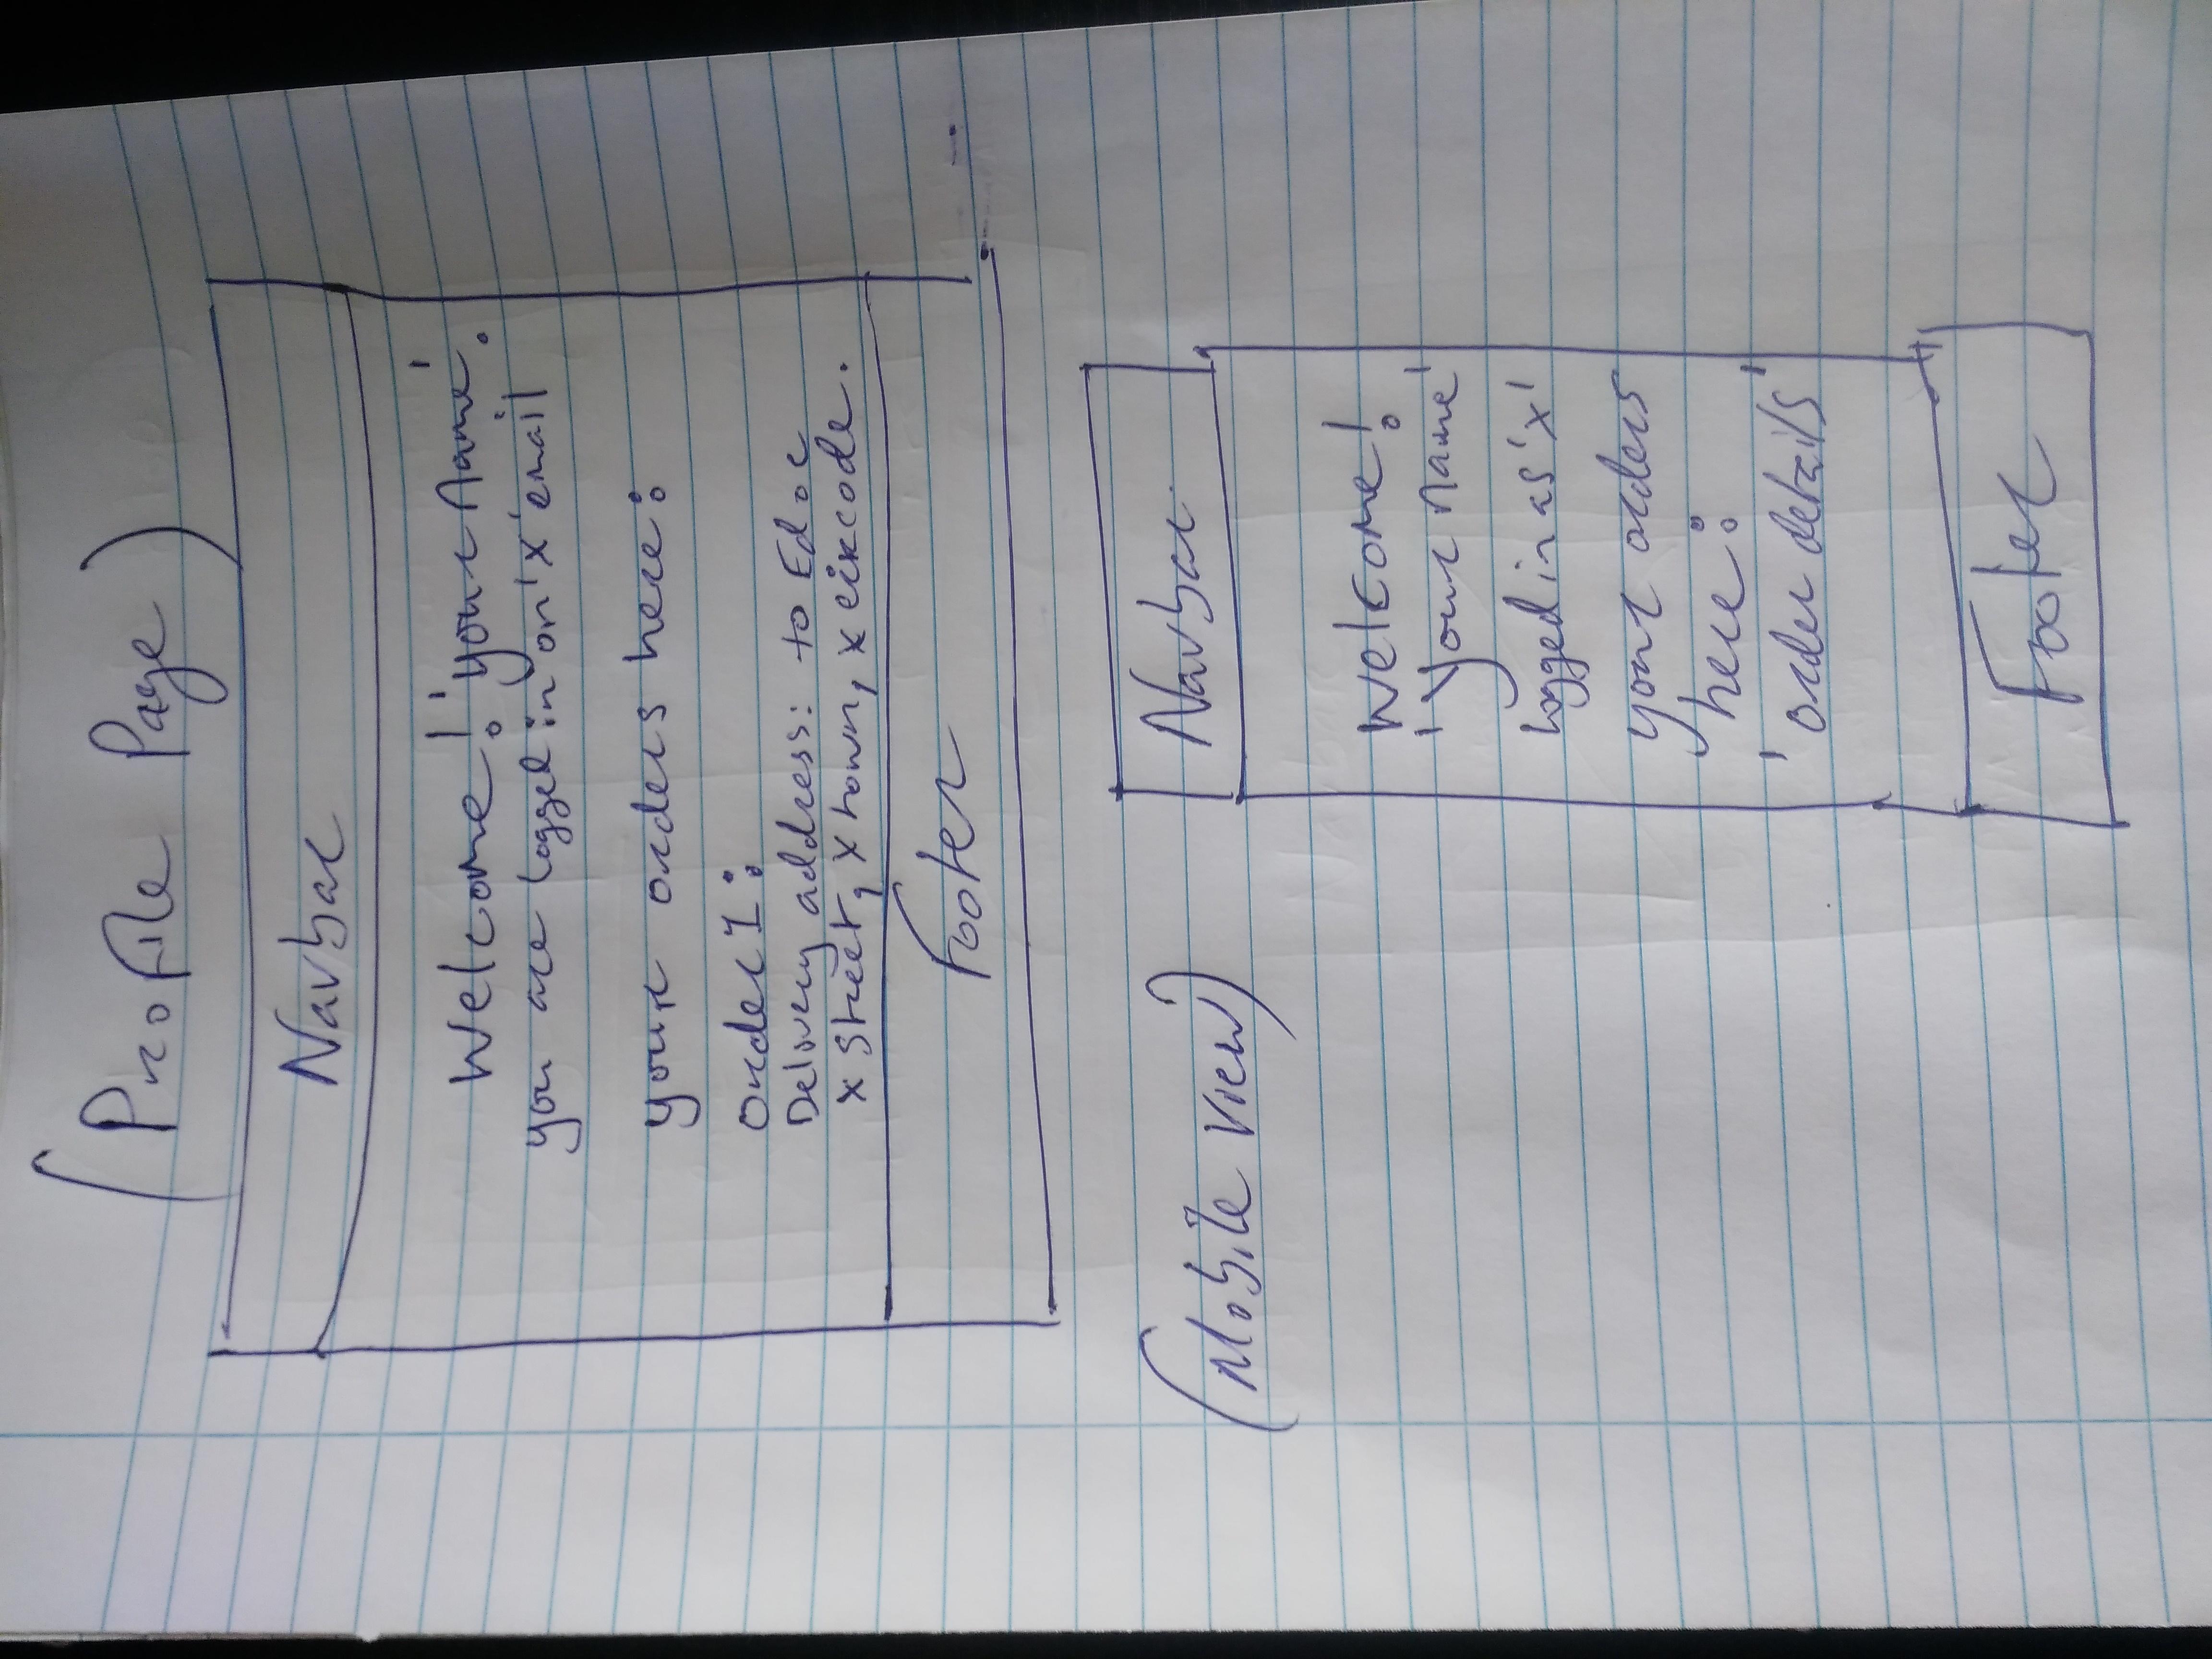 (Profile Page)
Navbar
Welcome! 'your Name'.
you are logged in on 'x' email
your orders here:
Order 1:
Delivery address: to Ed.c
x street, x town, x eircode.
Footer
(Mobile View)
Navbar
Welcome!
'your name'
logged in as 'x'
your orders
here:
'order details'
Footer